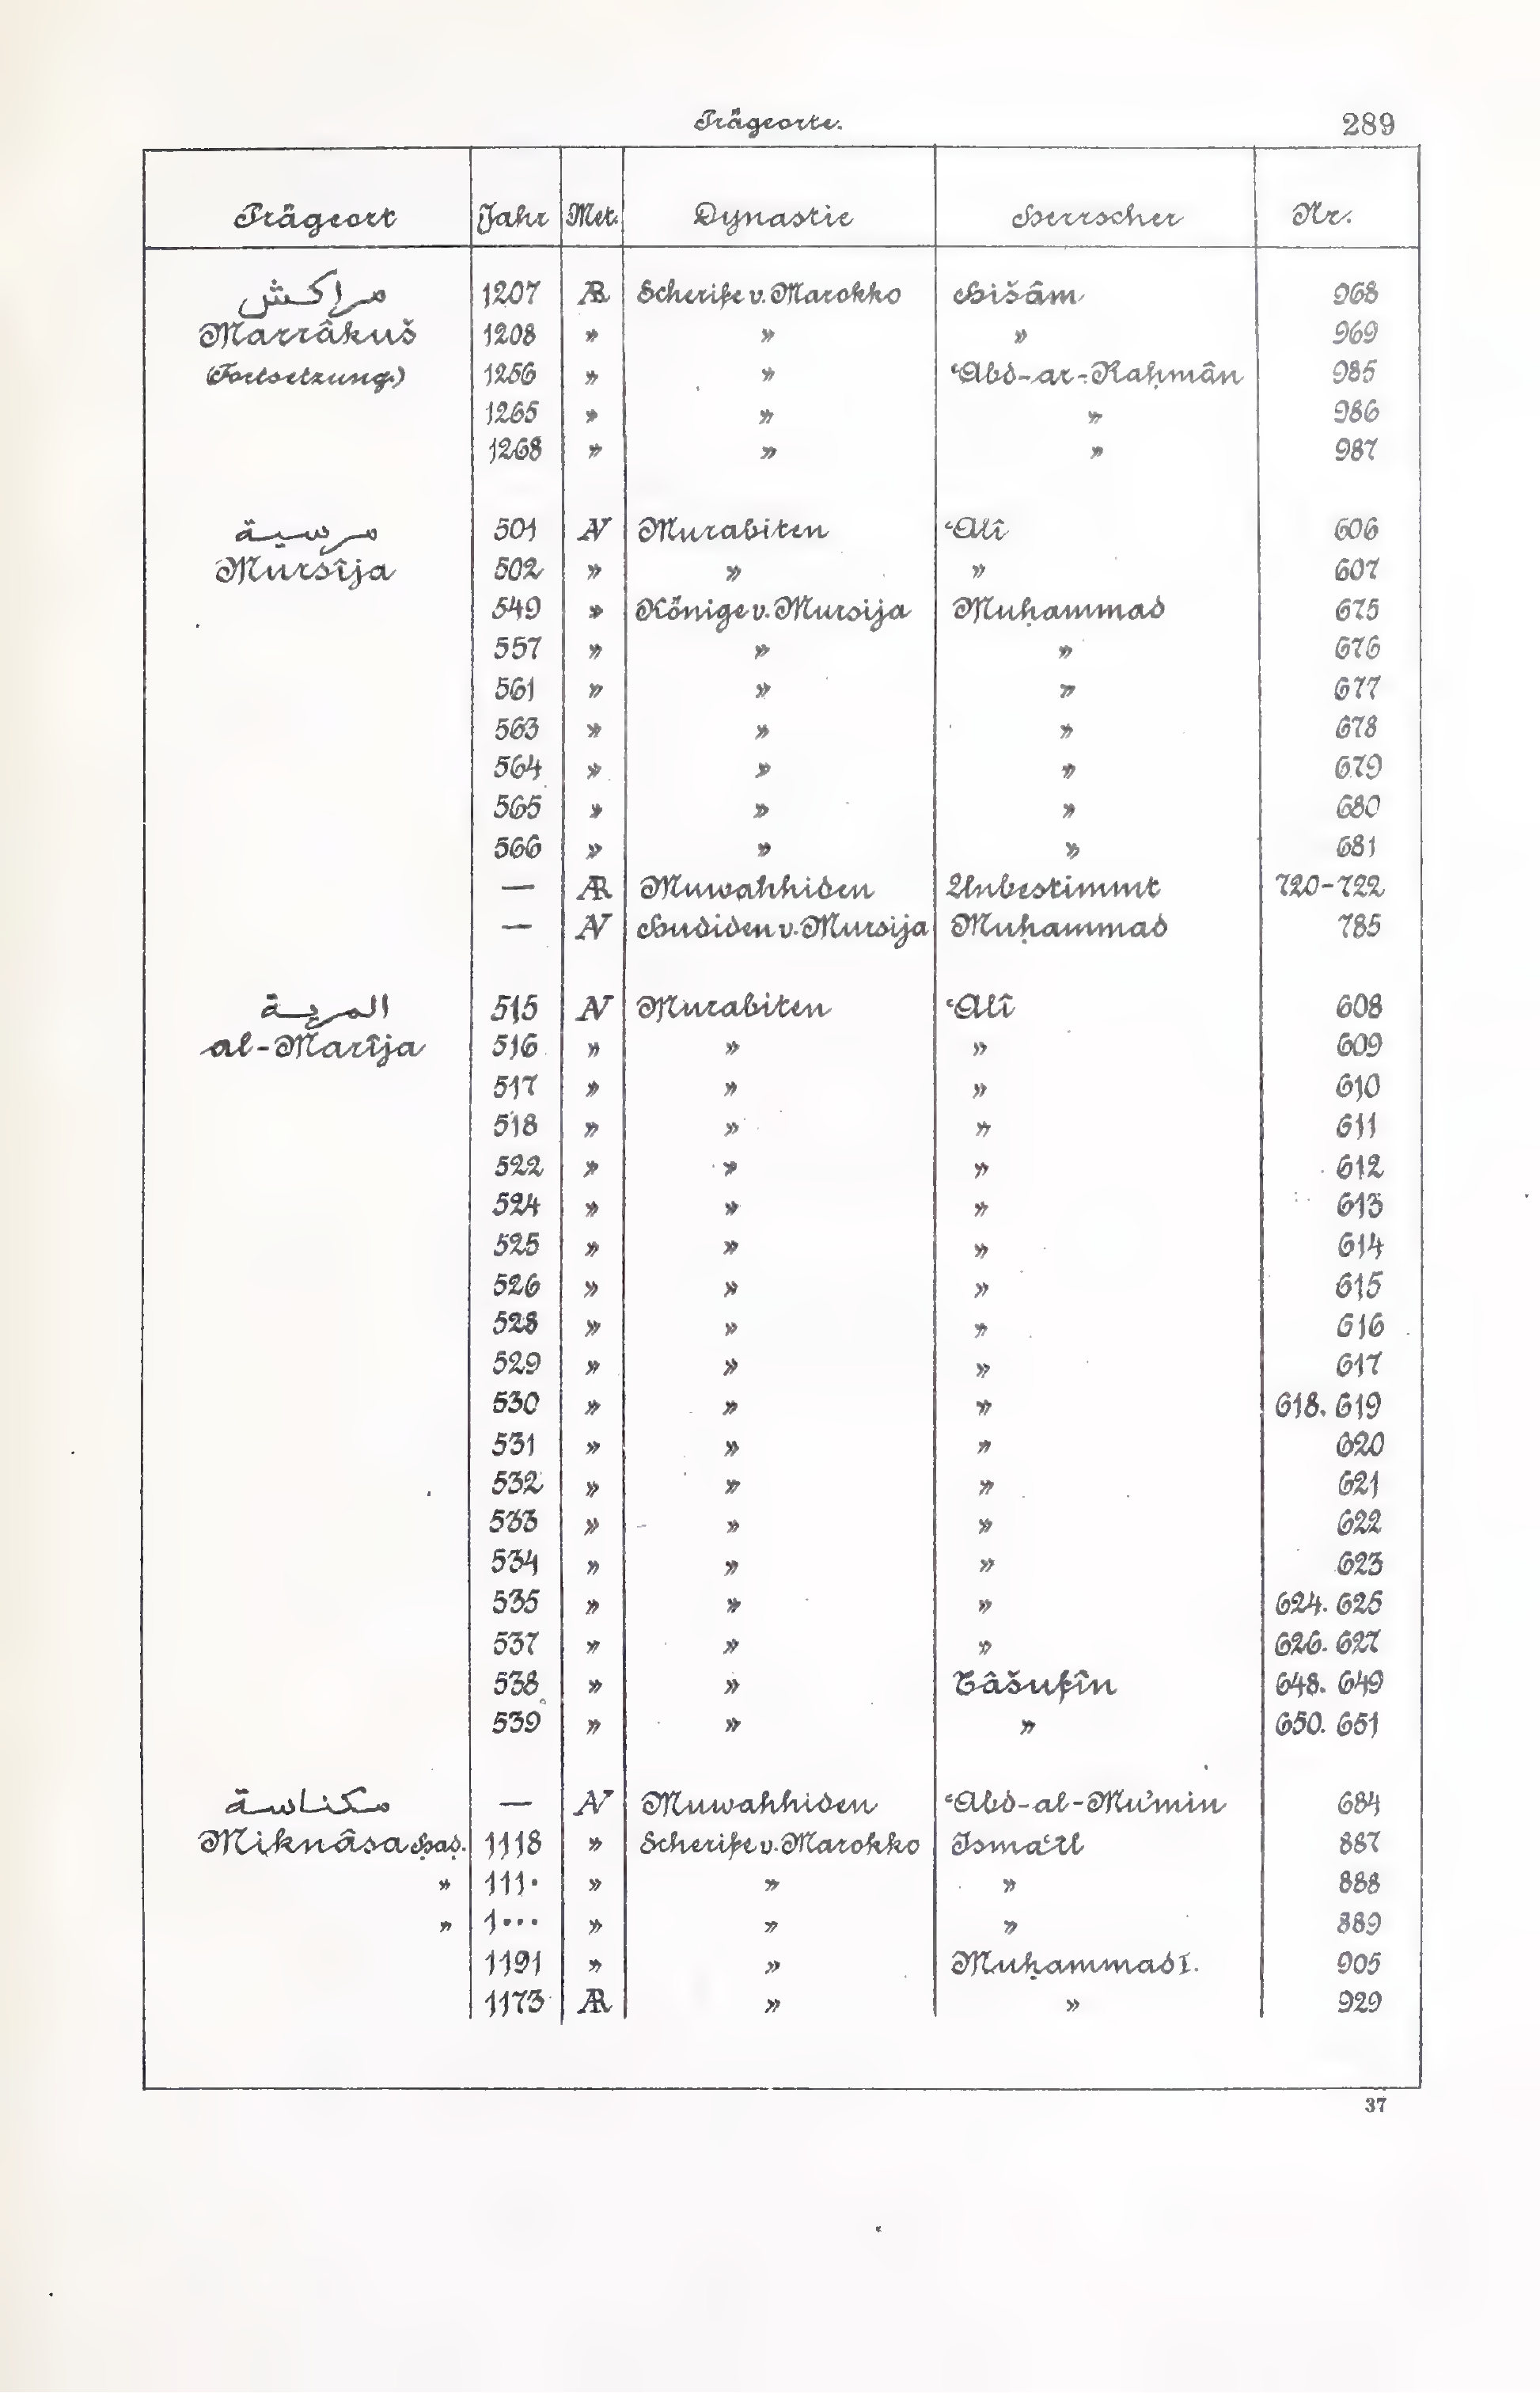 Prägeorte.
289
Prägeort Jahr Met. Dynastie Herrscher Nr.
مراكش 1207 AR Scherife v. Marokko Hišâm 968
Marrâkuš 1208 » » » 969
(Fortsetzung.) 1256 » » ʿAbd-ar-Raḥmân 985
1265 » » » 986
1268 » » » 987
مرسية 501 AV Murabiten ʿAlî 606
Mursîja 502 » » » 607
549 » Könige v. Mursija Muḥammad 675
557 » » » 676
561 » » » 677
563 » » » 678
564 » » » 679
565 » » » 680
566 » » » 681
— AR Muwahhiden Unbestimmt 720-722
— AV Hudiden v. Mursija Muḥammad 785
المرية 515 AV Murabiten ʿAlî 608
al-Marîja 516 » » » 609
517 » » » 610
518 » » » 611
522 » » » 612
524 » » » 613
525 » » » 614
526 » » » 615
528 » » » 616
529 » » » 617
530 » » » 618. 619
531 » » » 620
532 » » » 621
533 » » » 622
534 » » » 623
535 » » » 624. 625
537 » » » 626. 627
538 » » Tâšufîn 648. 649
539 » » » 650. 651
مكناسة — AV Muwahhiden ʿAbd-al-Mu'min 684
Miknâsa Ḥaḍ. 1118 » Scherife v. Marokko Ismaʿîl 887
» 111• » » » 888
» 1••• » » » 889
1191 » » Muḥammad I. 905
1173 AR » » 929
37